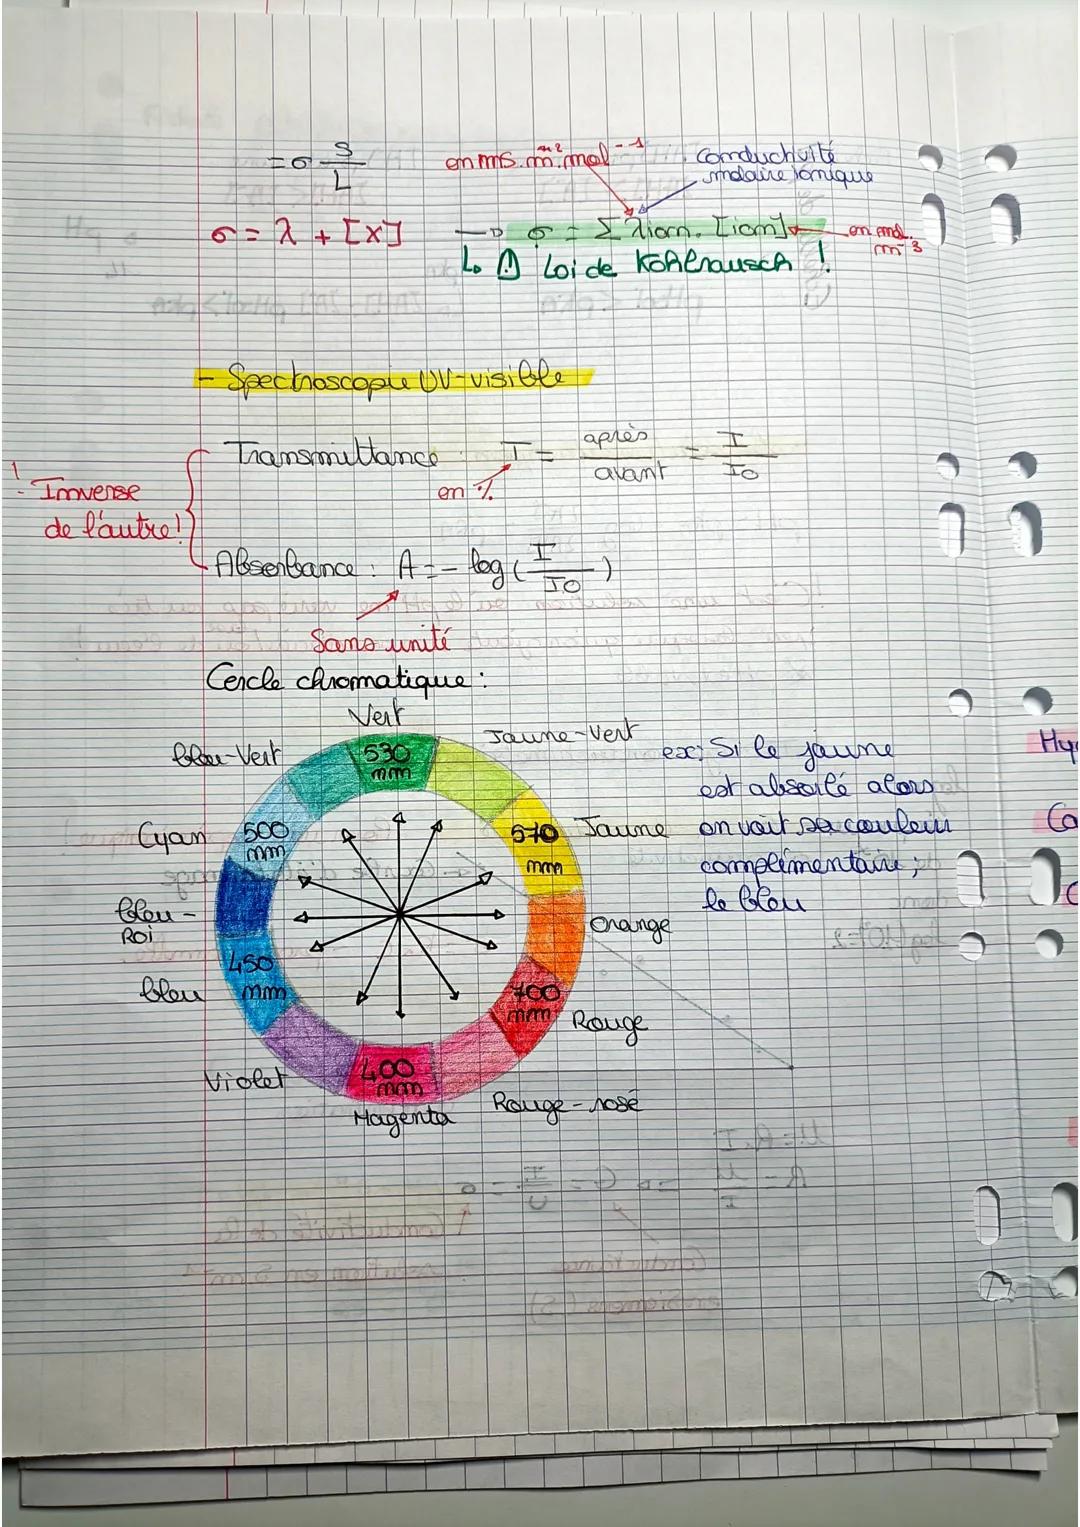 = σ S/L
en mS.m².mol⁻¹
conductivité
molaire ionique
σ = λ + [X] → σ = Σ λion. [ion]
en mol.
m⁻³
↳ ⚠ Loi de Kohlrausch !
- Spectroscopie UV-visible
Transmittance : T = après/avant = I/I0
en %
! Inverse
de l'autre!
Absorbance : A = - log ( I/I0 )
Sans unité
Cercle chromatique :
Vert
bleu-Vert
530
nm
Jaune-Vert
ex: Si le jaune
est absorbé alors
Cyan
500
nm
570
nm
Jaune
on voit sa couleur
complémentaire ;
le bleu
bleu-
Roi
Orange
bleu
450
nm
700
nm
Rouge
Violet
400
nm
Magenta
Rouge-rosé
Hy
Ca